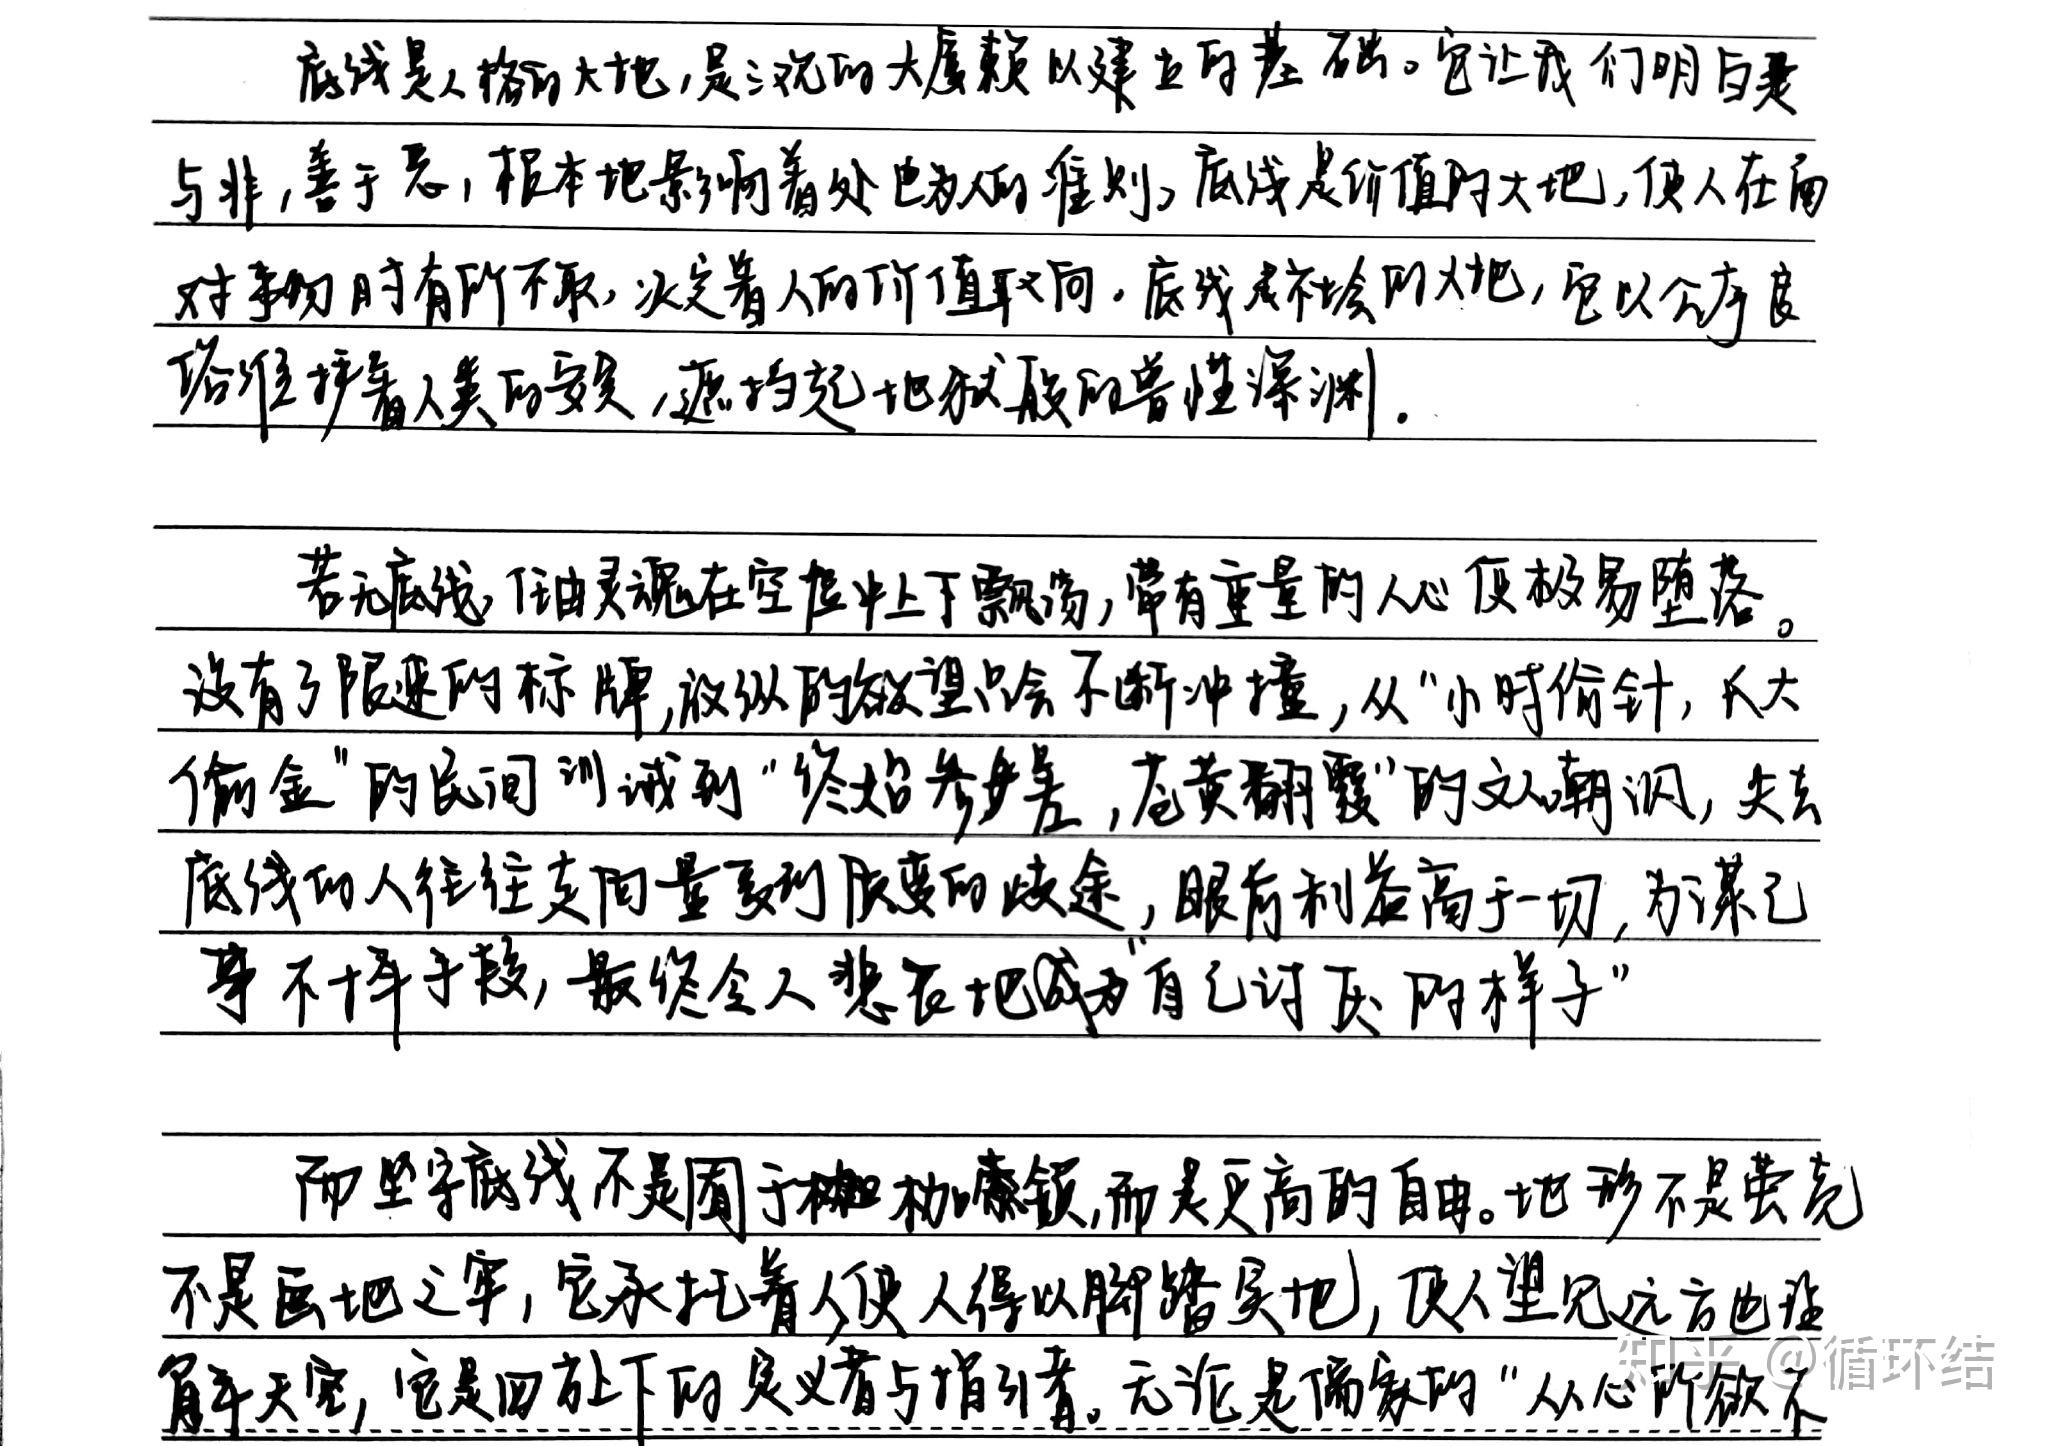 底线是人格的大地，是三观的大厦赖以建立的基础。它让我们明白是
与非，善于恶，根本地影响着处世为人的准则。底线是价值的大地，使人在面
对事物时有所不取，决定着人的价值取向。底线是社会的大地，它以公序良
俗维护着人类的安定，遮挡起地狱般的兽性深渊。
若无底线，任由灵魂在空虚中上下飘荡，带有重量的人心便极易堕落。
没有了限速的标牌，放纵的欲望只会不断冲撞，从“小时偷针，长大
偷金”的民间训诫到“终始参差，苍黄翻覆”的文人嘲讽，失去
底线的人往往走向量变到质变的歧途，眼前利益高于一切，为谋己
事不择手段，最终令人悲哀地成为“自己讨厌的样子”
而坚守底线不是囿于枷锁，而是更高的自由。地形不是茧壳
不是画地之牢，它承托着人，使人得以脚踏实地，使人望见远方也
解车天空，它是四方上下的定义者与指引者。无论是儒家的“从心所欲不
知乎 @循环结